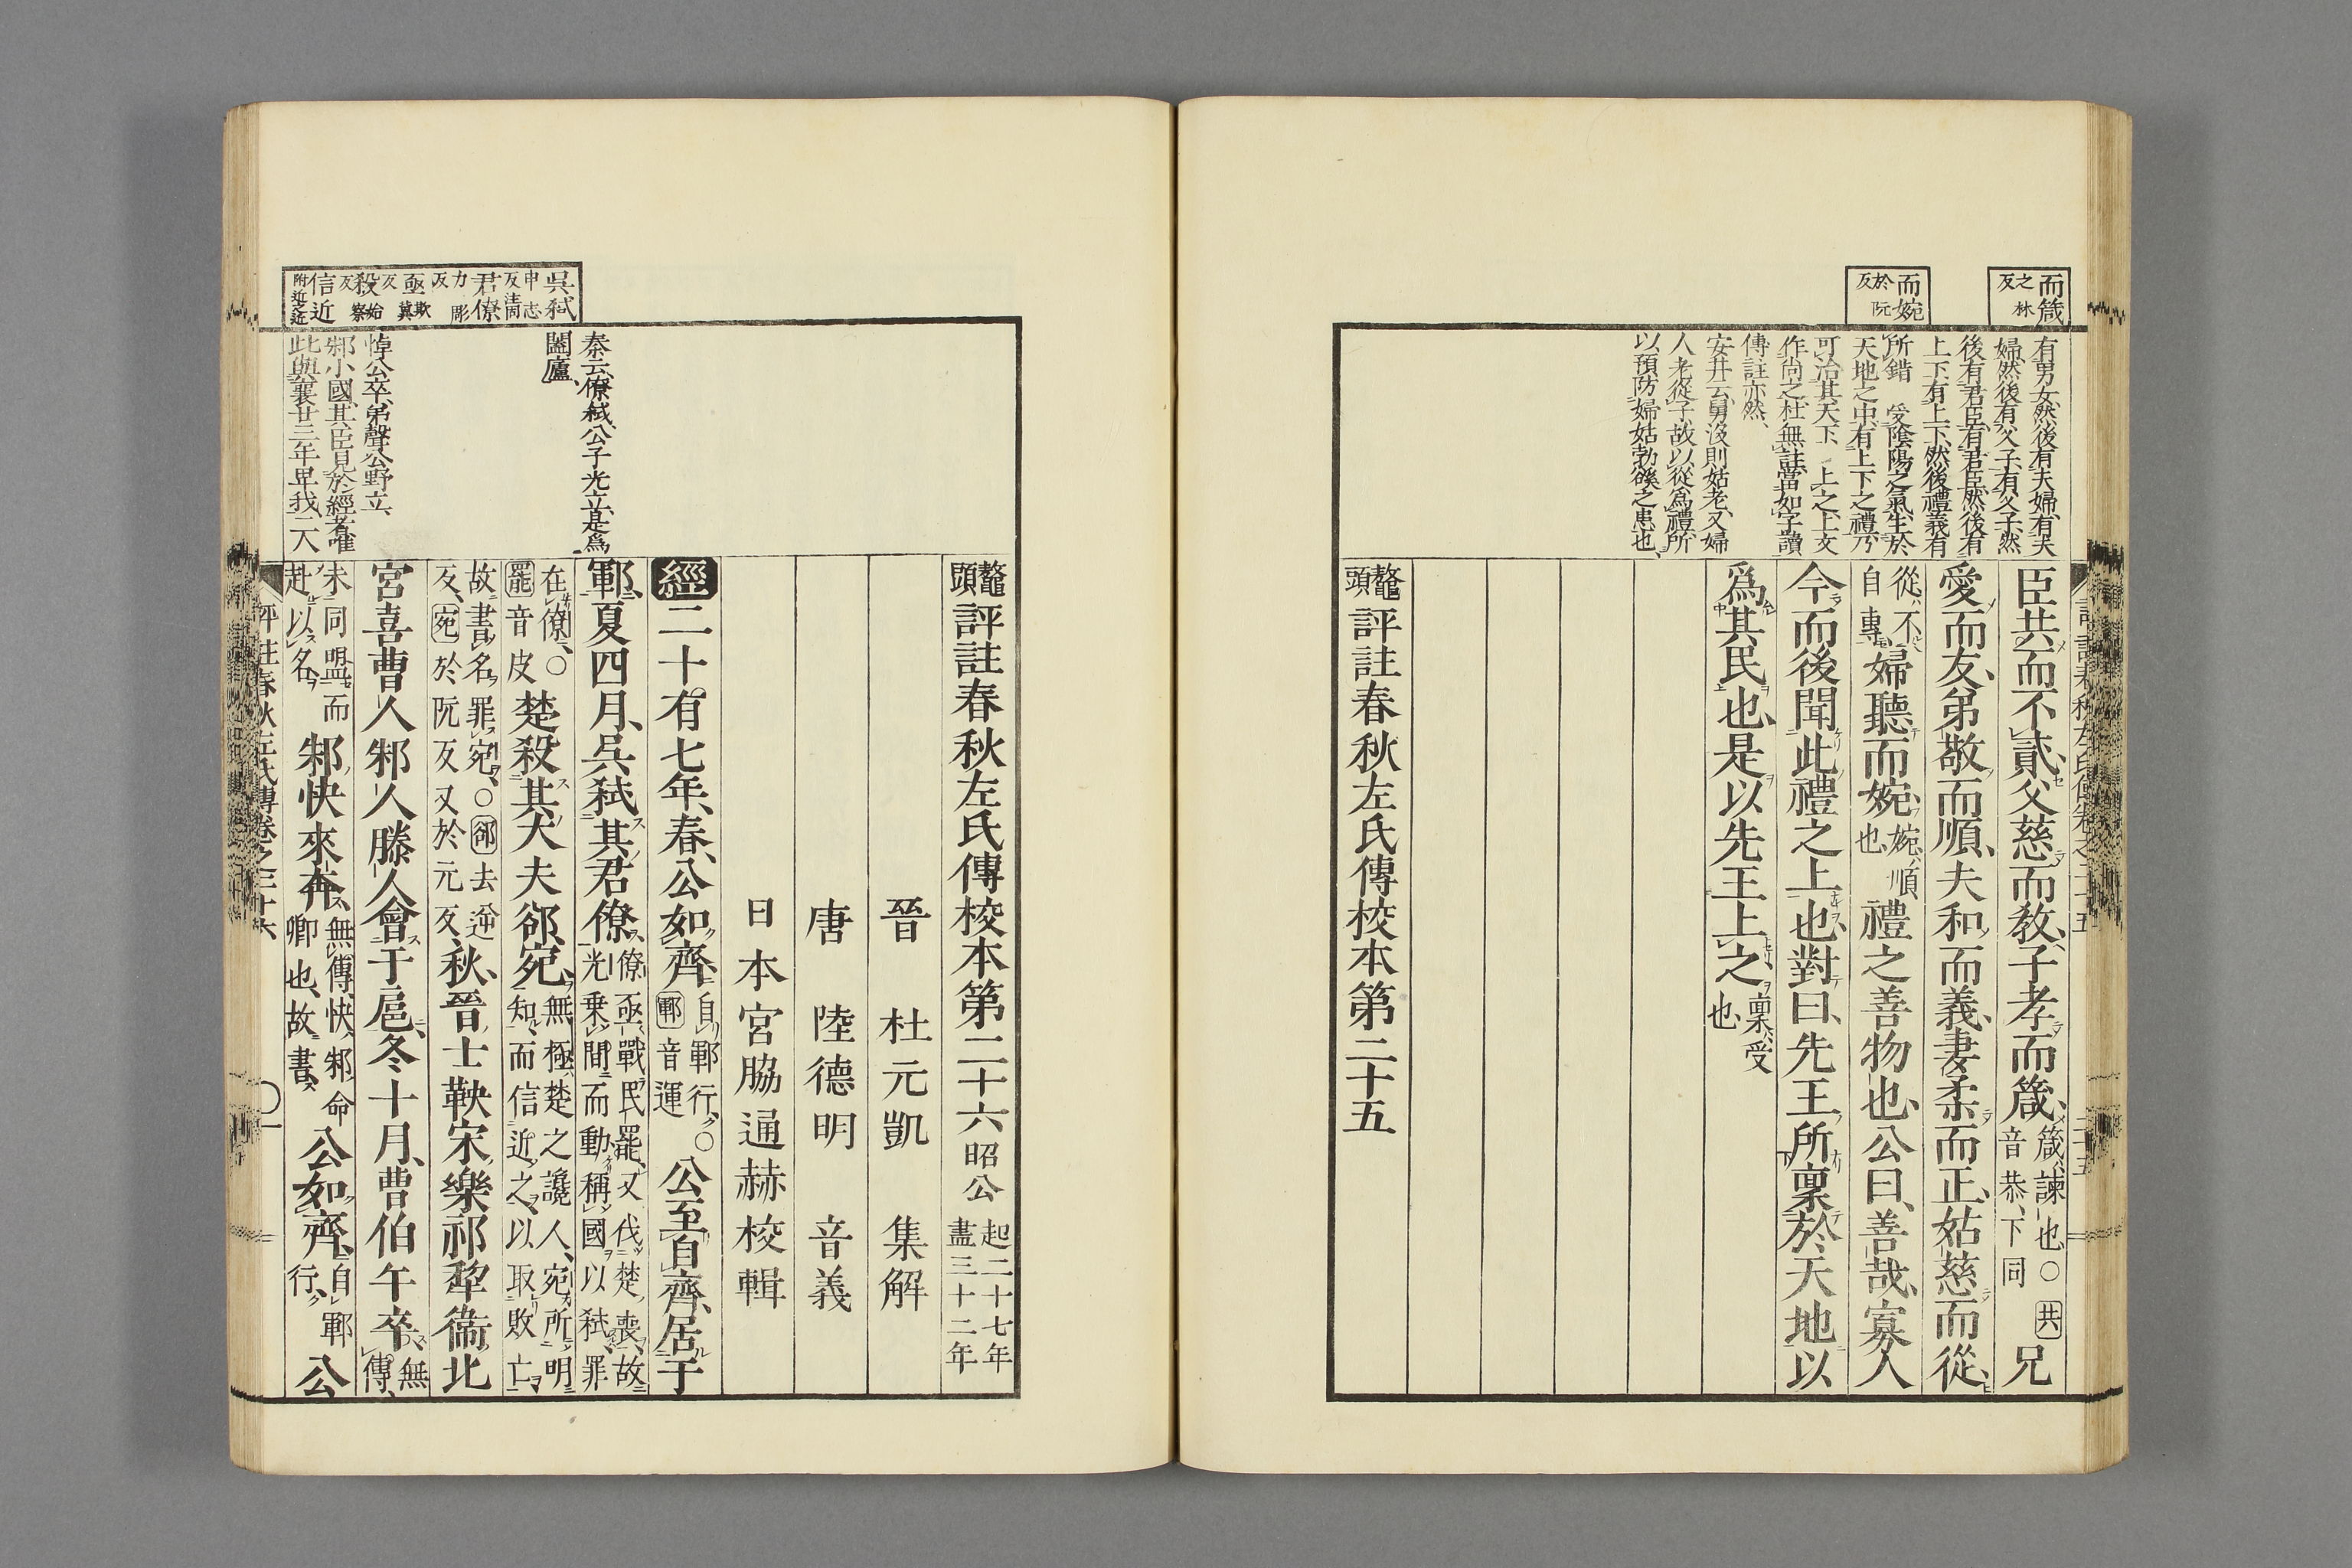 而箴
之林
反
而婉
於阮
反
有男女然後有夫婦有夫
婦然後有父子有父子然
後有君臣有君臣然後有
上下有上下然後禮義有
所錯 受陰陽之氣生於
天地之中有上下之禮乃
可治其天下 上之上文
作尚之杜無註當如字讀
傳註亦然
安井云舅沒則姑老又婦
人老從子故以從爲禮所
以預防婦姑勃谿之患也
臣共而不貳父慈而敎子孝而箴箴諫也○共音恭下同兄
愛而友弟敬而順夫和而義妻柔而正姑慈而從
從不自專婦聽而婉婉順也禮之善物也公曰善哉寡人
今而後聞此禮之上也對曰先王所稟於天地以
爲其民也是以先王上之稟受也
鼇頭評註春秋左氏傳校本第二十五
吳弑
申志
反淸
君僚
力彫
反
亟欺冀
反
殺始察
反
信近
附近之近
秦云僚弑公子光立是爲
闔廬
悼公卒弟聲公野立
邾小國其臣見於經者唯
此與襄廿三年畀我二人
鼇頭評註春秋左氏傳校本第二十六昭公起二十七年盡三十二年
晉 杜元凱 集解
唐 陸德明 音義
日本宮脇通赫校輯
經二十有七年春公如齊自鄆行○鄆音運公至自齊居于
鄆夏四月吳弑其君僚僚亟戰民罷又伐楚喪故光乘間而動稱國以弑罪
在僚○罷音皮楚殺其大夫郤宛無極楚之讒人宛所明知而信近之以取敗亡
故書名罪宛○郤去逆反宛於阮反又於元反秋晉士鞅宋樂祁犂衞北
宮喜曹人邾人滕人會于扈冬十月曹伯午卒無傳
未同盟而赴以名邾快來奔無傳快邾命卿也故書公如齊自鄆行公
評註春秋左氏傳卷之二十六